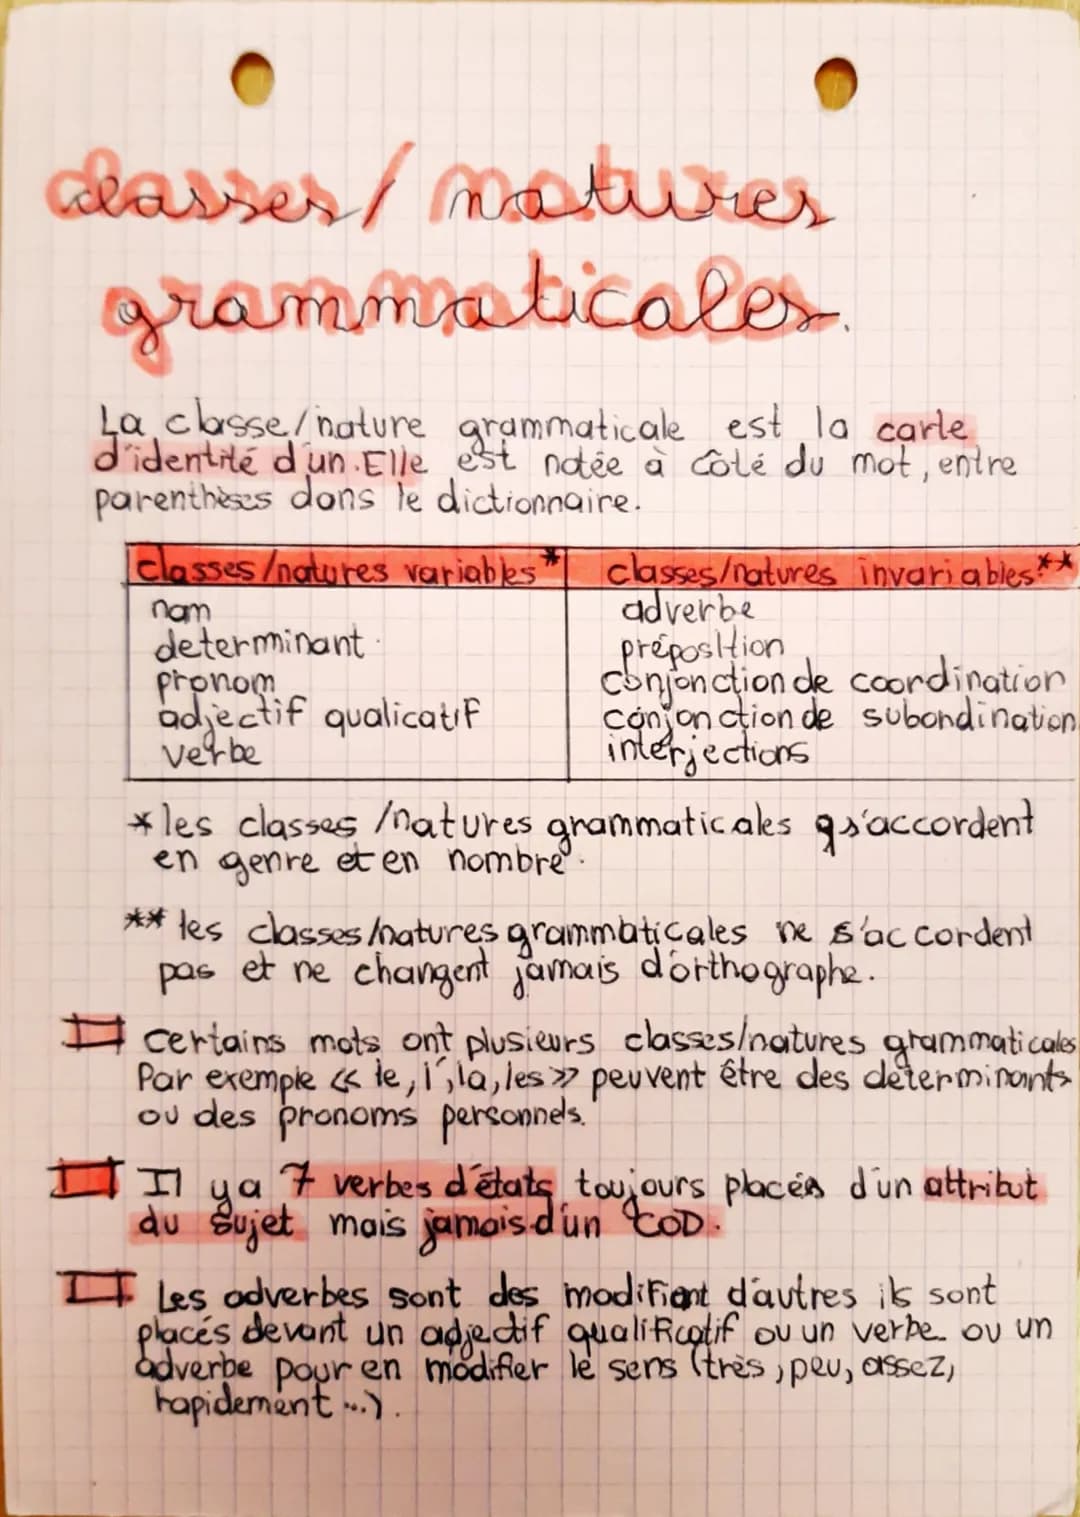 classes/natures
grammaticales.
La classe/nature grammaticale est la carte
d'identité d'un. Elle est notée à côté du mot, entre
parenthèses dans le dictionnaire.
classes/natures variables* classes/natures invariables**
nom adverbe
determinant préposition
pronom conjonction de coordination
adjectif qualicatif conjonction de subondination
verbe interjections
*les classes/natures grammaticales qs'accordent
en genre et en nombre.
** les classes/natures grammaticales ne s'accordent
pas et ne changent jamais d'orthographe.
Certains mots ont plusieurs classes/natures grammaticales
Par exemple << le, l', la, les >> peuvent être des déterminants
ou des pronoms personnels.
Il ya 7 verbes d'états toujours placés d'un attribut
du sujet mais jamais d'un COD.
Les adverbes sont des modifient d'autres ils sont
placés devant un adjectif qualificatif ou un verbe ou un
adverbe pour en modifier le sens (très, peu, assez,
rapidement ...).